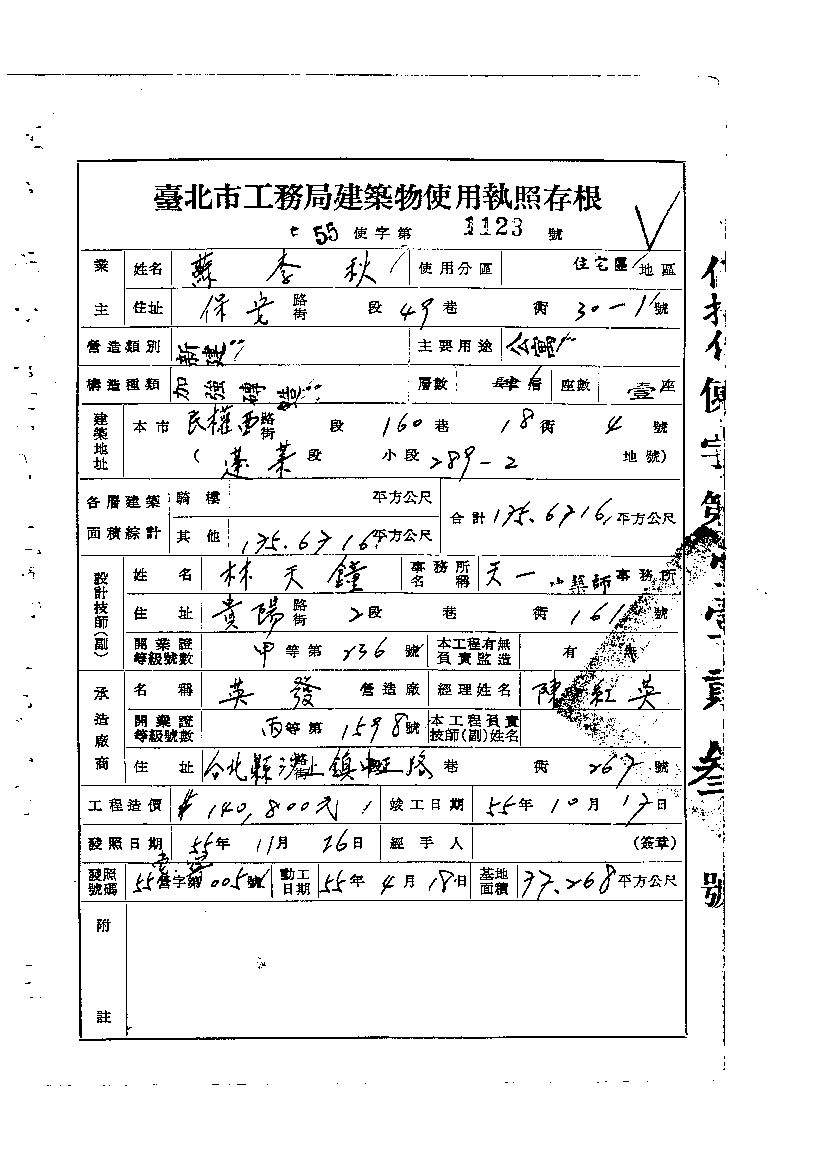 臺北市工務局建築物使用執照存根
55 使字第 1123 號
業主 姓名 蘇李秋 使用分區 住宅區 地區
住址 保安 路街 段 49 巷 衖 30-1 號
營造類別 新建 主要用途 公寓
構造種類 加強磚造 層數 層 座數 壹座
建築地址 本市 民權西 路街 段 160 巷 18 衖 4 號
( 蓬萊 段 小段 289-2 地號)
各層建築面積綜計 騎樓 平方公尺 合計 175.6716 平方公尺
其他 175.6716 平方公尺
設計技師(副) 姓名 林天鐘 事務所名稱 天一 建築師 事務所
住址 貴陽 路街 2 段 巷 衖 161 號
開業證等級號數 甲 等第 236 號 本工程有無負責監造 有
承造廠商 名稱 英發 營造廠 經理姓名 陳紅英
開業證等級號數 丙 等第 1598 號 本工程負責技師(副)姓名
住址 台北縣 鎮 路 巷 衖 267 號
工程造價 $140,800元 竣工日期 55 年 10 月 17 日
發照日期 55 年 11 月 26 日 經手人 (簽章)
發照號碼 55 營字第 005 號 動工日期 55 年 4 月 18 日 基地面積 77.268 平方公尺
附註
使字第 壹貳叁 號